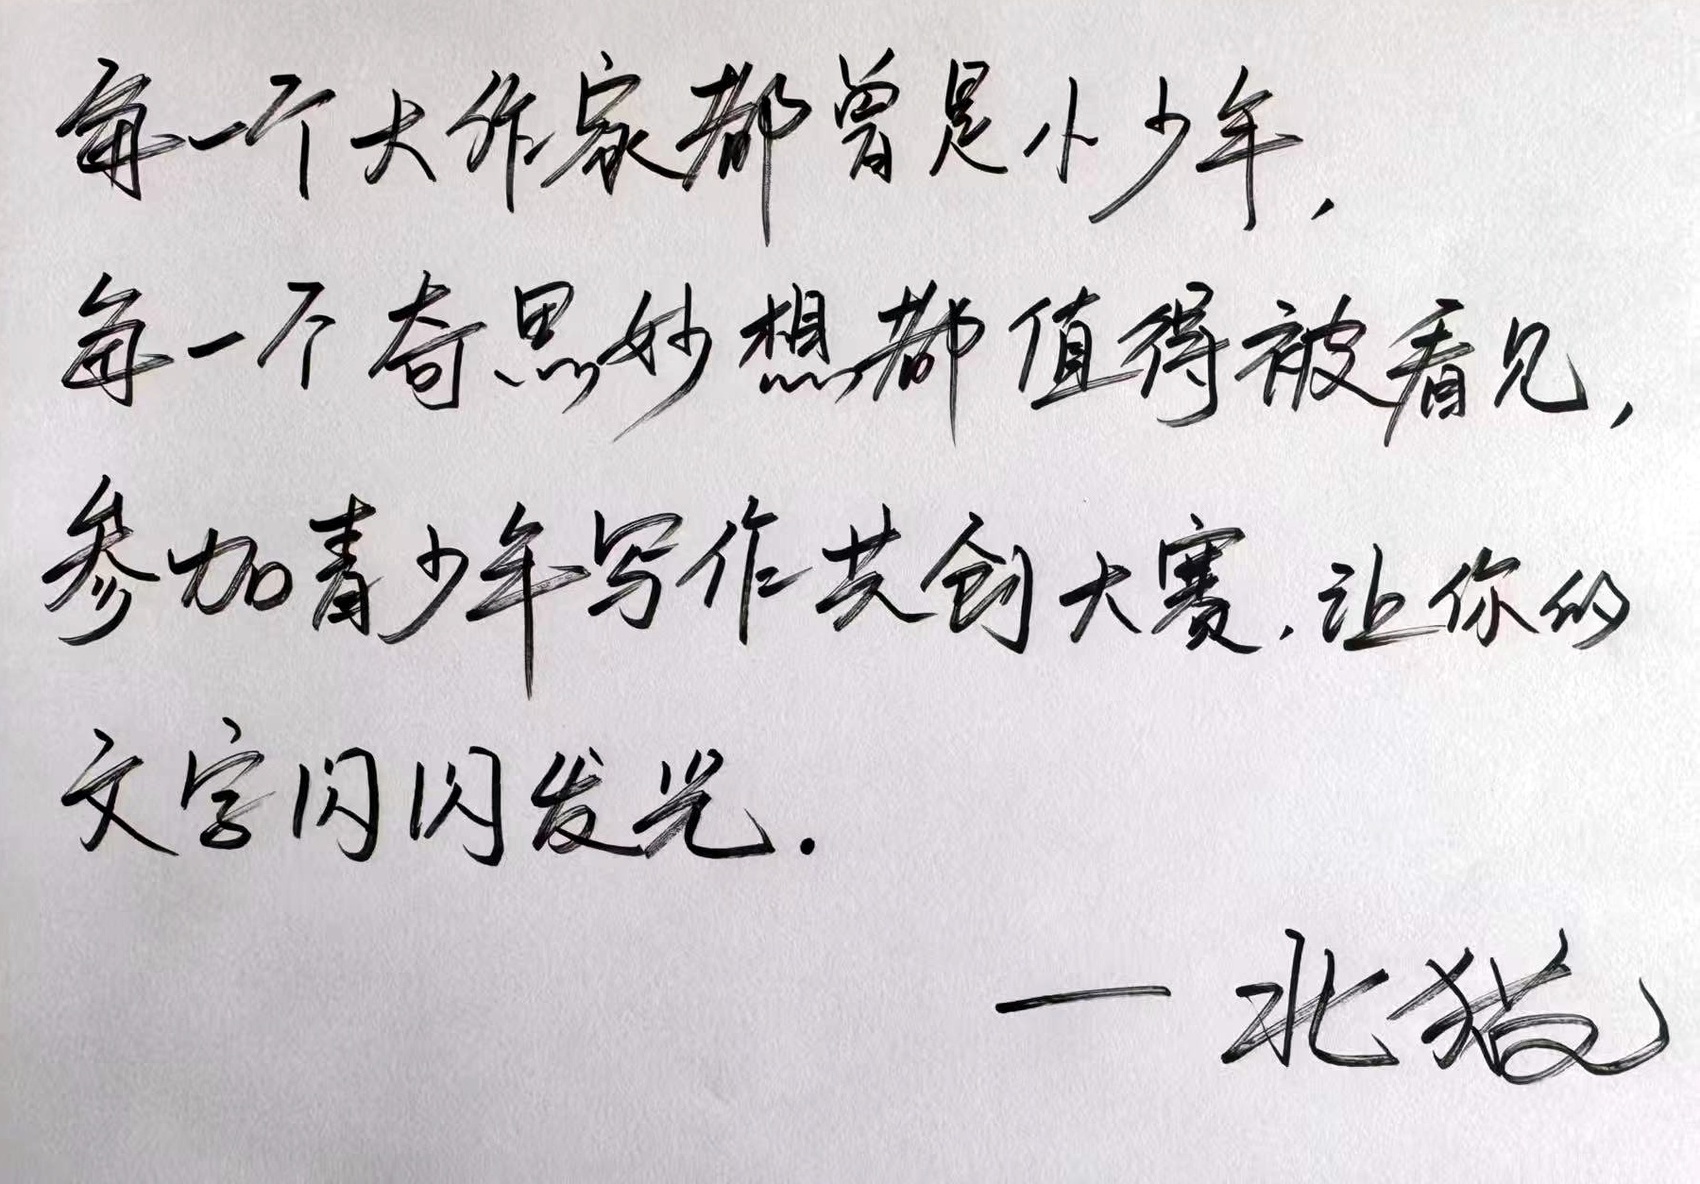 每一个大作家都曾是小少年,
每一个奇思妙想都值得被看见,
参加青少年写作共创大赛,让你的
文字闪闪发光.
—北猫